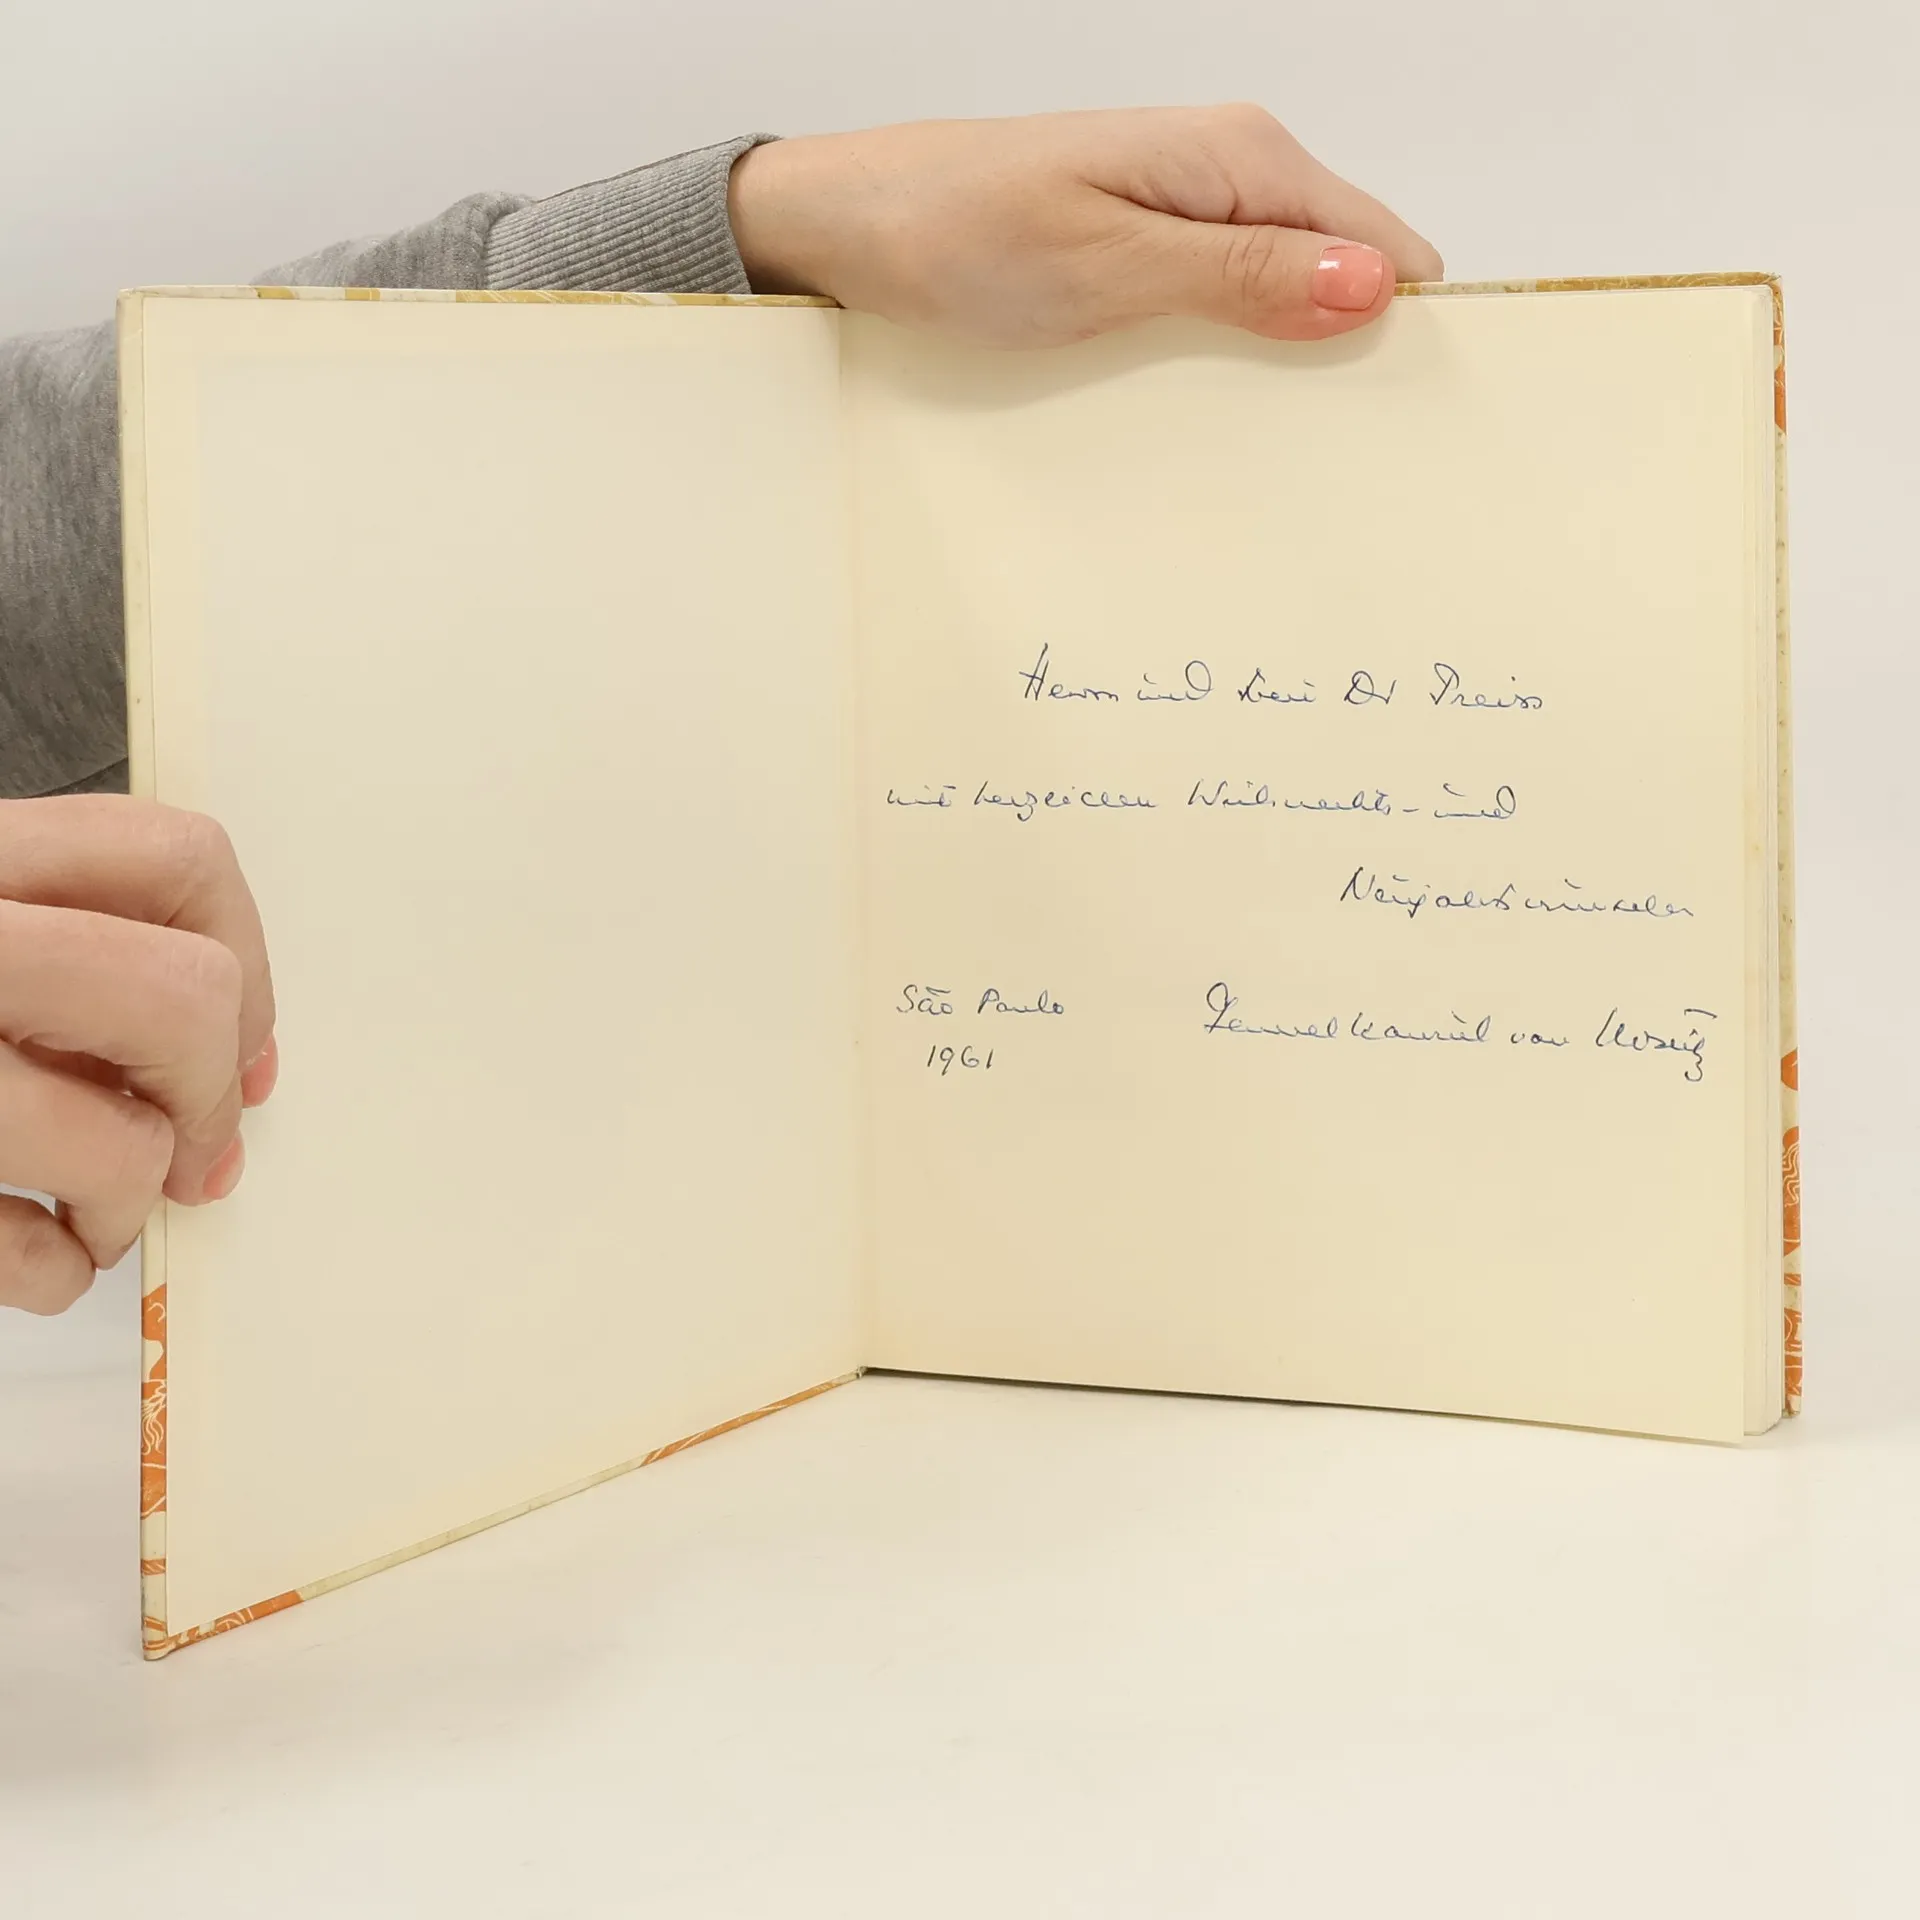 Herrn und Frau Dr Preiss
mit herzlichen Weihnachts- und
Neujahrswünschen
São Paulo
1961
von